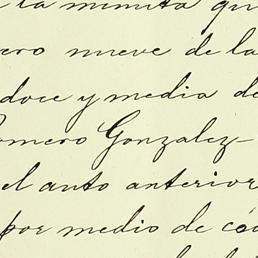 la minuta qu
ero nueve de la
doce y media de
omero Gonzalez-
el auto anterior
por medio de có